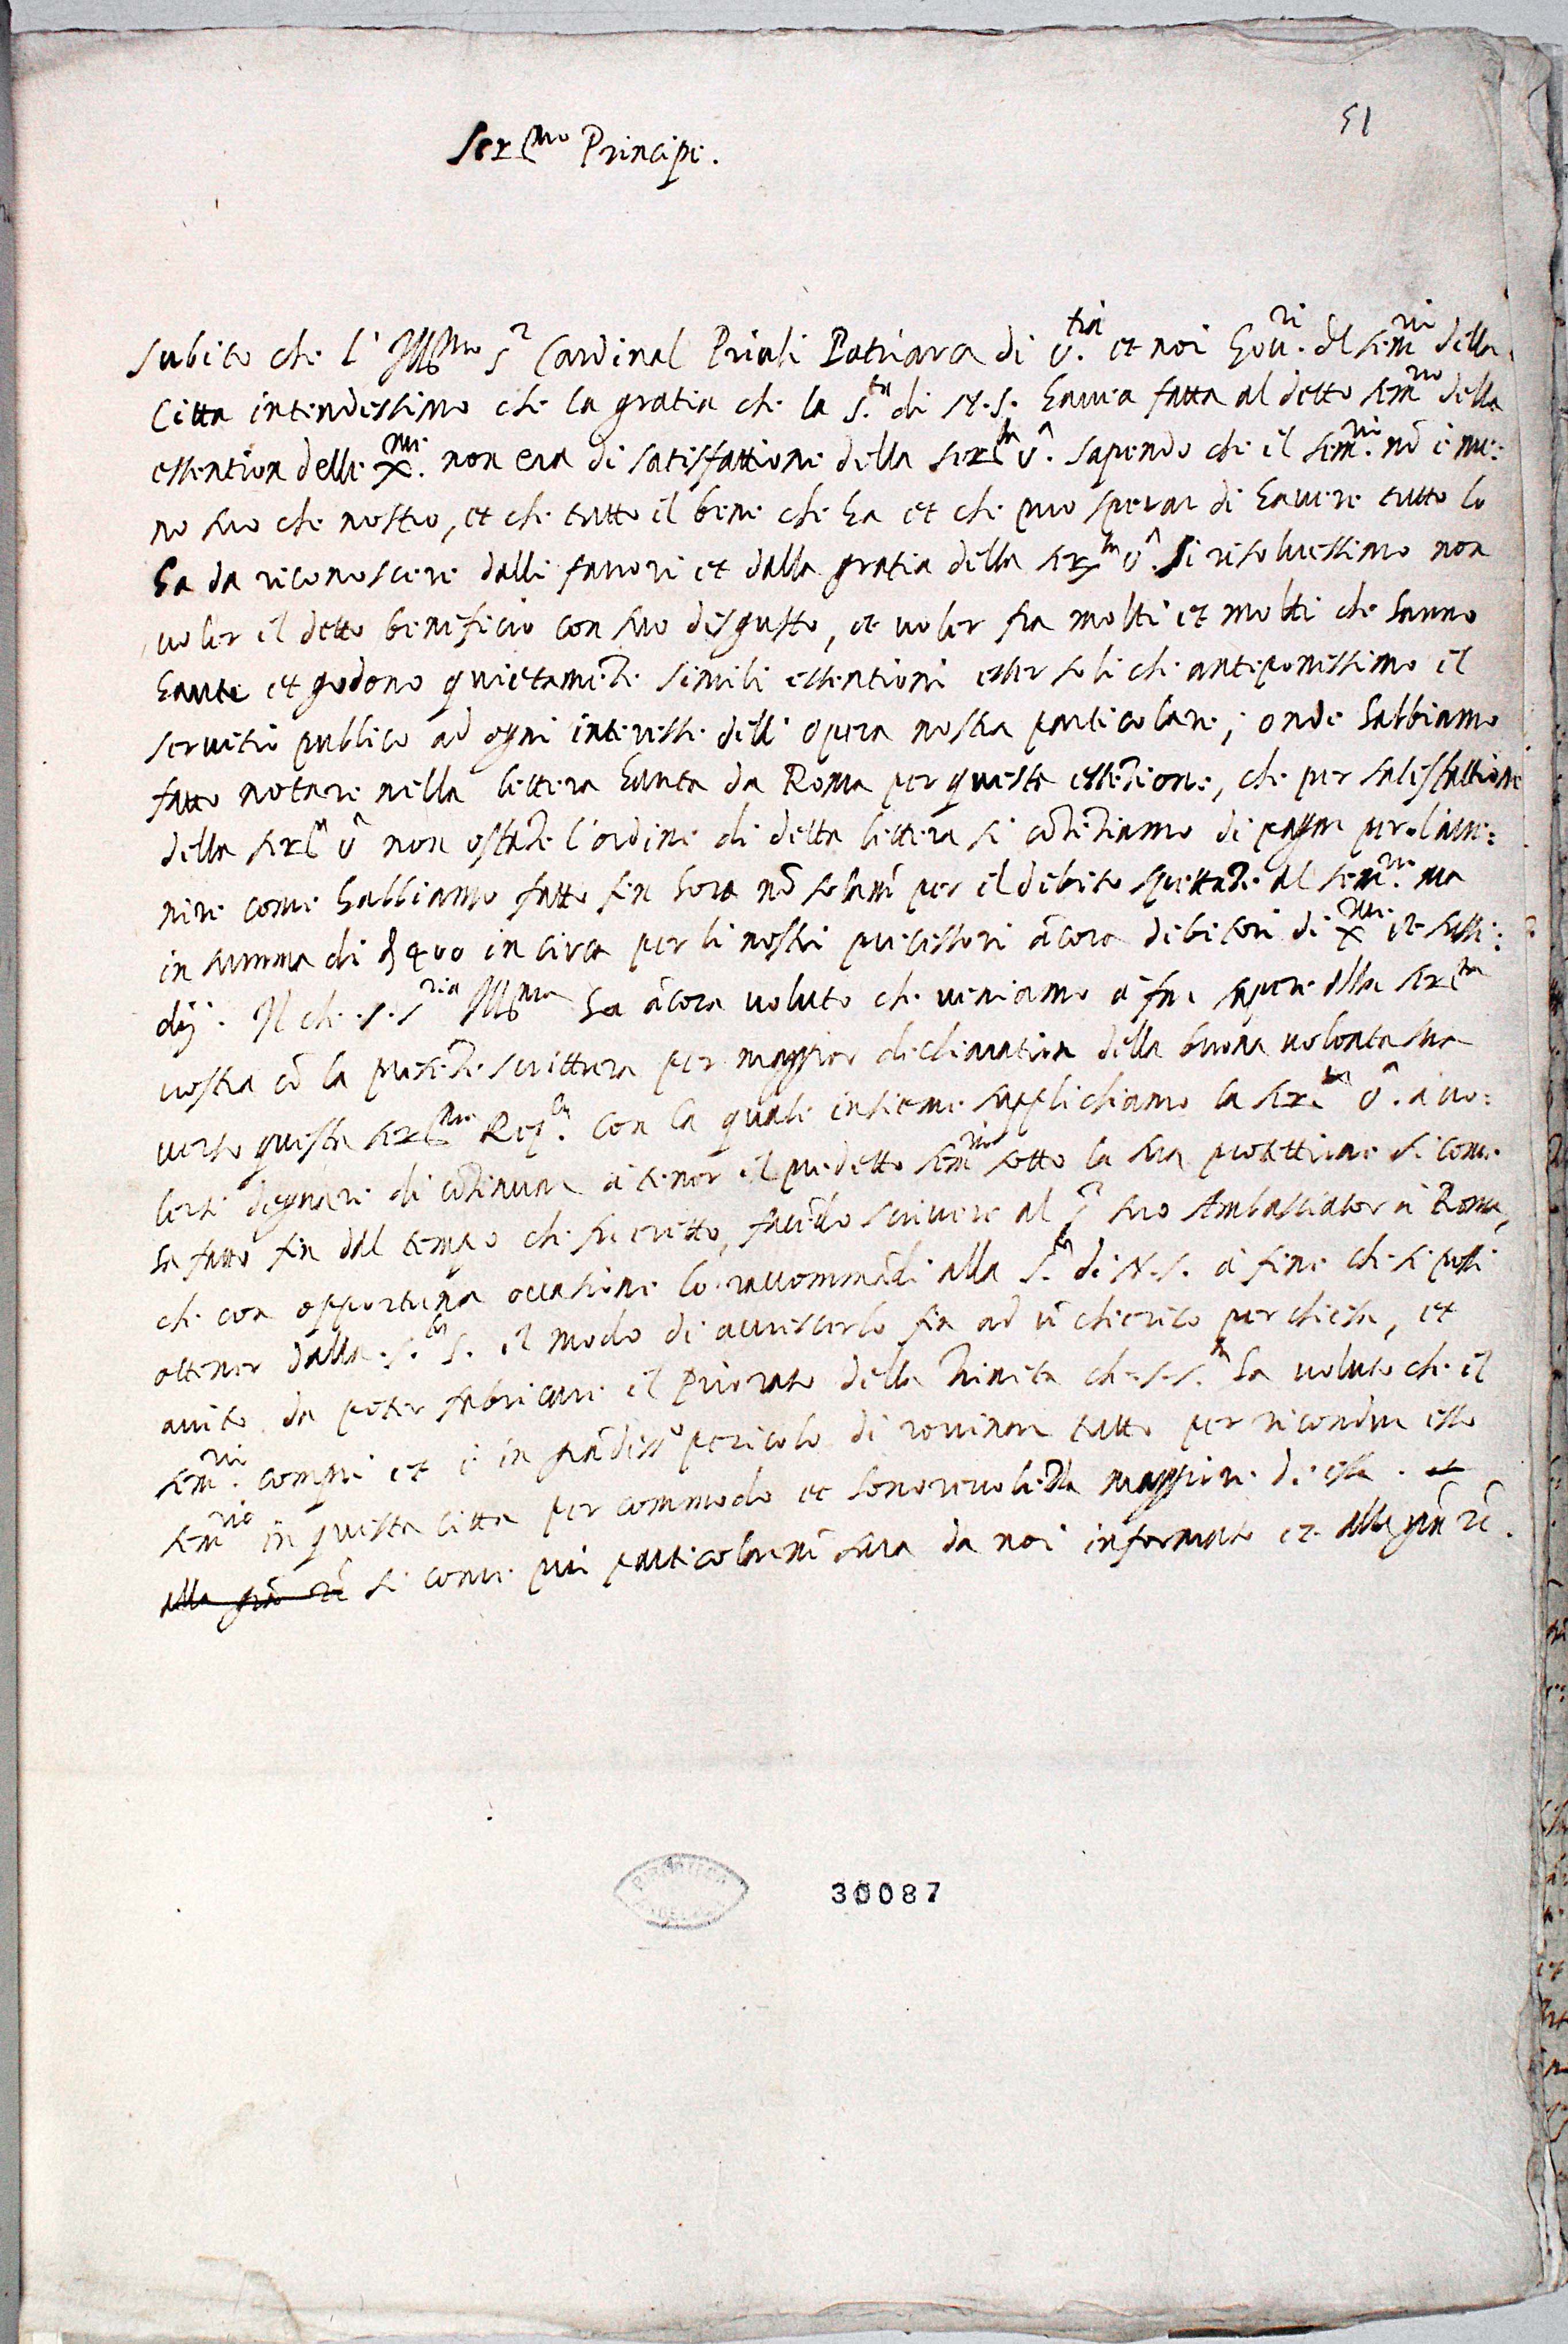 51
Ser.mo Principe.
Subito che l'Ill.mo S.r Cardinal Priuli Patriarca di V.tia et noi Gou.ri del sem.rio della
Citta intendessimo che la gratia che la S.tà di N.S. hauea fatta al detto sem.rio della
essention delle X.me non era di satisfattione della Ser.tà V.ª sapendo che il sem.rio nõ è me:
no suo che nostro, et che tutto il bene che ha et che puo sperar di hauere tutto lo
ha da riconoscere dalli fauori et dalla gratia della Ser.tà V.ª si risoluessimo non
uoler il detto beneficio con suo disgusto, et uoler fra molti et molti che hanno
haute et godono quietamẽte simili essentioni esser soli che anteponessimo il
seruitio publico ad ogni interesse dell'opera nostra particolare; onde habbiamo
fatto notare nella lettera hauta da Roma per questa essẽtione, che per satisfattione
della Ser.tà V.ª non ostãte l'ordine di detta lettera si cõtẽtiamo di pagar per l'aue:
nire come habbiamo fatto fin hora nõ solam.te per il debito spettãte al sem.rio ma
in summa di 400 in circa per li nostri precessori ãcora debitori di X.me et sussi:
dij. Il che S.S.ria Ill.ma ha ãcora uoluto che ueniamo à far sapere alla Ser.tà
uostra cõ la presẽte scrittura per maggior dechiaration della buona uolonta sua
uerso questa Ser.ma Rep.ca con la quale insieme supplichiamo la Ser.tà V.ª à uo:
lersi degnare di cõtinuar à tener il predetto sem.rio sotto la sua protettione si come
ha fatto fin dal tempo che fu eretto, facẽdo scriuere al S.r suo Ambassiator à Roma,
che con opportuna occasione lo raccommãdi alla S.tà di N.S. à fine che si possi
ottener dalla S.tà S. il modo di accrescerlo fin ad ũ chierico per chiesa, et
aiuto da poter fabricare il Priorato della Trinita che S.S.tà ha uoluto che il
sem.rio compri et è in grãdiss.o pericolo di rouinare tutto per ricondur esso
sem.rio in questa citta per commodo et honoreuolezza maggiore di essa. et
alla grã rẽ si come piu particolarm.te sara da noi informato et alla grã rẽ.
30087